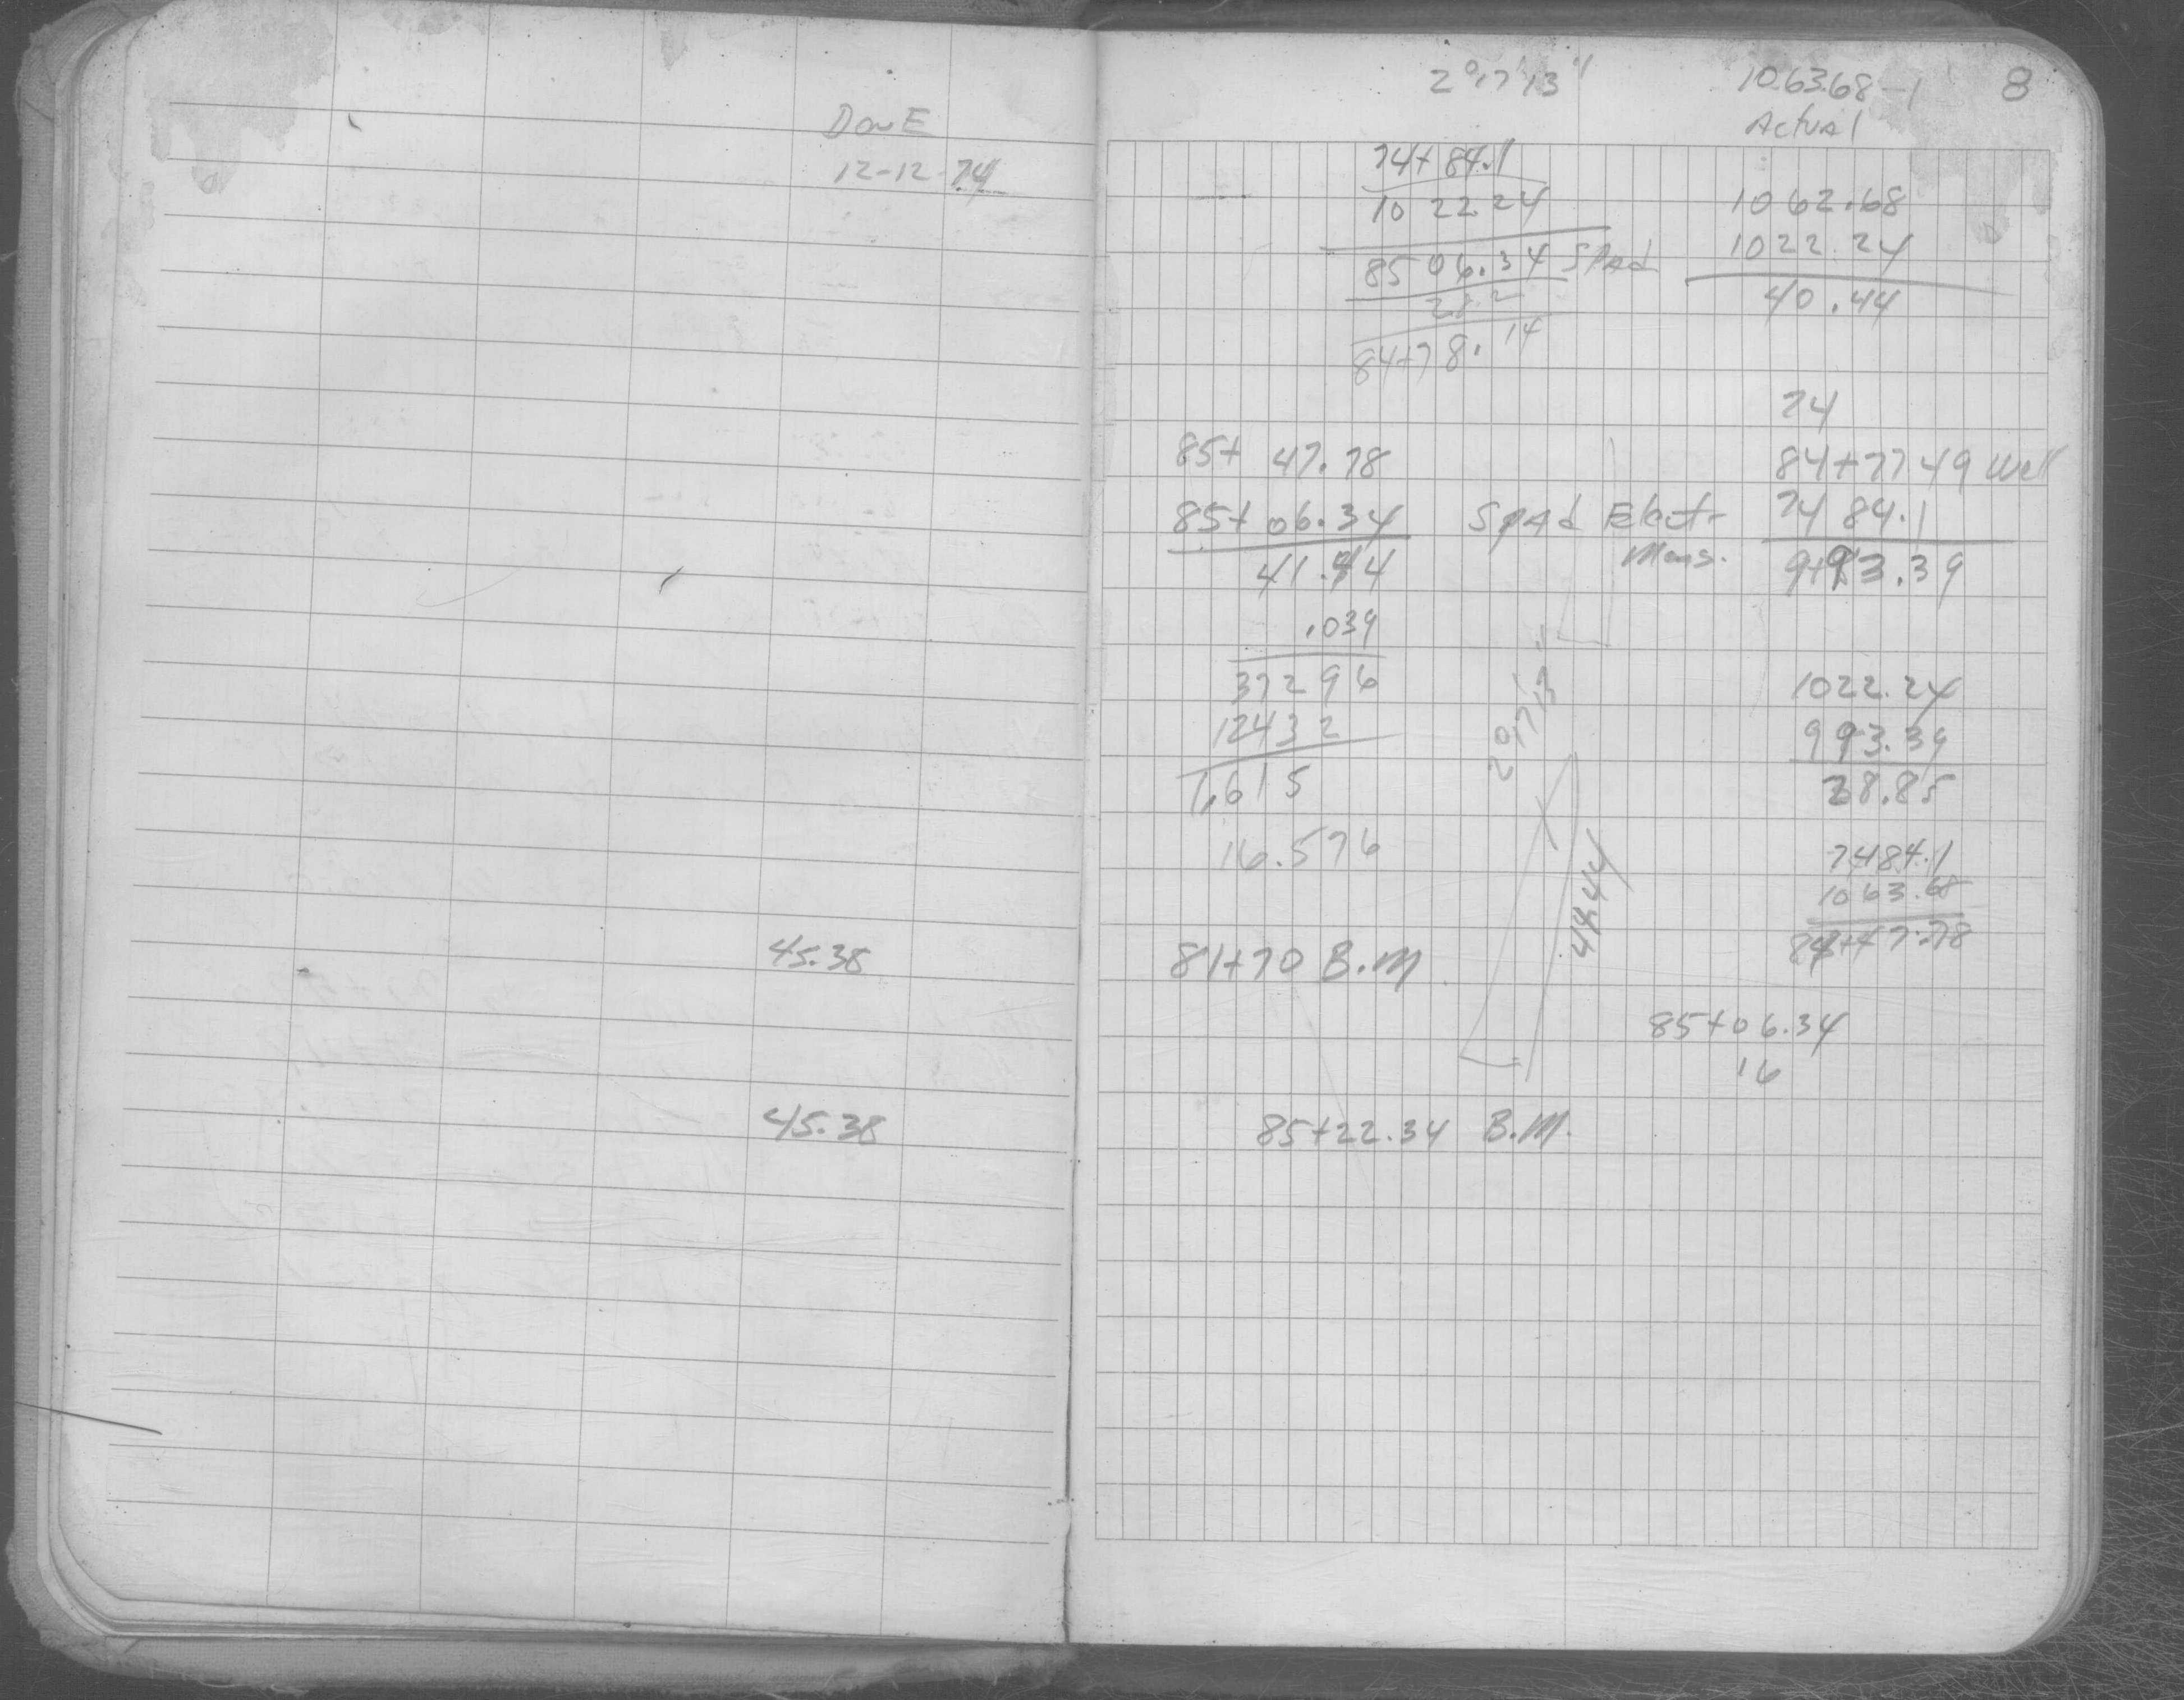 DonE
12-12-74
45.38
45.38
2°17'13"
10.63.68-1
8
Actual
74+84.1
10 22 24
85 06.34 SPAd
28.2
84+78.14
1062.68
1022.24
40.44
74
85+ 47.78
84+77.49 Well
85+ 06.34 SpAd Elect-
74 84.1
41.44
Meas.
9+93.39
.039
37296
12432
1.615
16.576
2°17'13"
41.44
1022.24
993.39
28.85
7484.1
1063.68
85+47.78
81+70 B.M.
85+06.34
16
85+22.34 B.M.